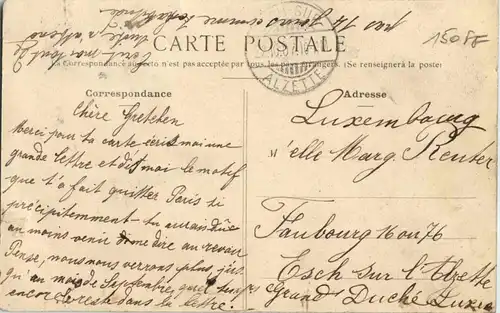 15087
CARTE POSTALE
La Correspondance au recto n'est pas acceptée par tous les pays étrangers. (Se renseigner à la poste)
ALZETTE
Correspondance
Adresse
Chère Gretchen
Merci pour ta carte écris moi une
grande lettre et dis moi le motif
que t'a fait quitter Paris si
précipitemment tu aurais dûe
au moins venir me dire au revoir
Pense, nous nous verrons plus, jus
qu'au mois de Septembre, quel temps
encor Le reste dans la lettre.
Luxembourg
M'elle Marg. Reuter
Faubourg 16 ou 76
Esch sur l'Alzette
Grand Duché Luxem